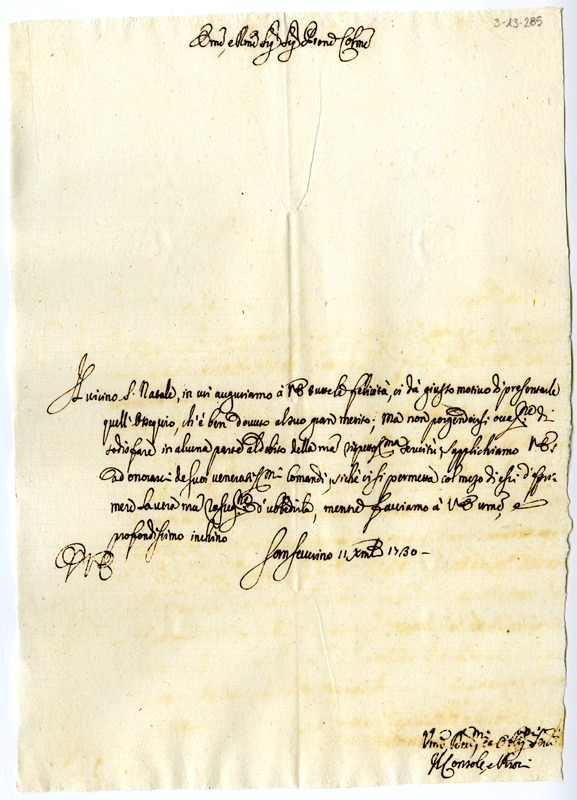 3-13-285
Emo, e Rmo Sig Sig Prone Colmo
Il vicino S. Natale, in cui auguriamo à VE tutte le felicità, ci dà giusto motivo di presentarle
quell'ossequio, ch'è ben dovuto al suo gran merito; Ma non porgendosi occane di
sodisfare in alcuna parte al debito della nra servitù, supplichiamo VE
ad onorarci de suoi veneratmi Comandi, sichè ci si permetta col mezo di essi d'espri-
mere la vera nra d'ubbidirla, mentre facciamo à VE umo, e
profondissimo inchino
Sanseverino 11 Xmbre 1730
DVE
Umi Devmi ed
Il Console, e Priori